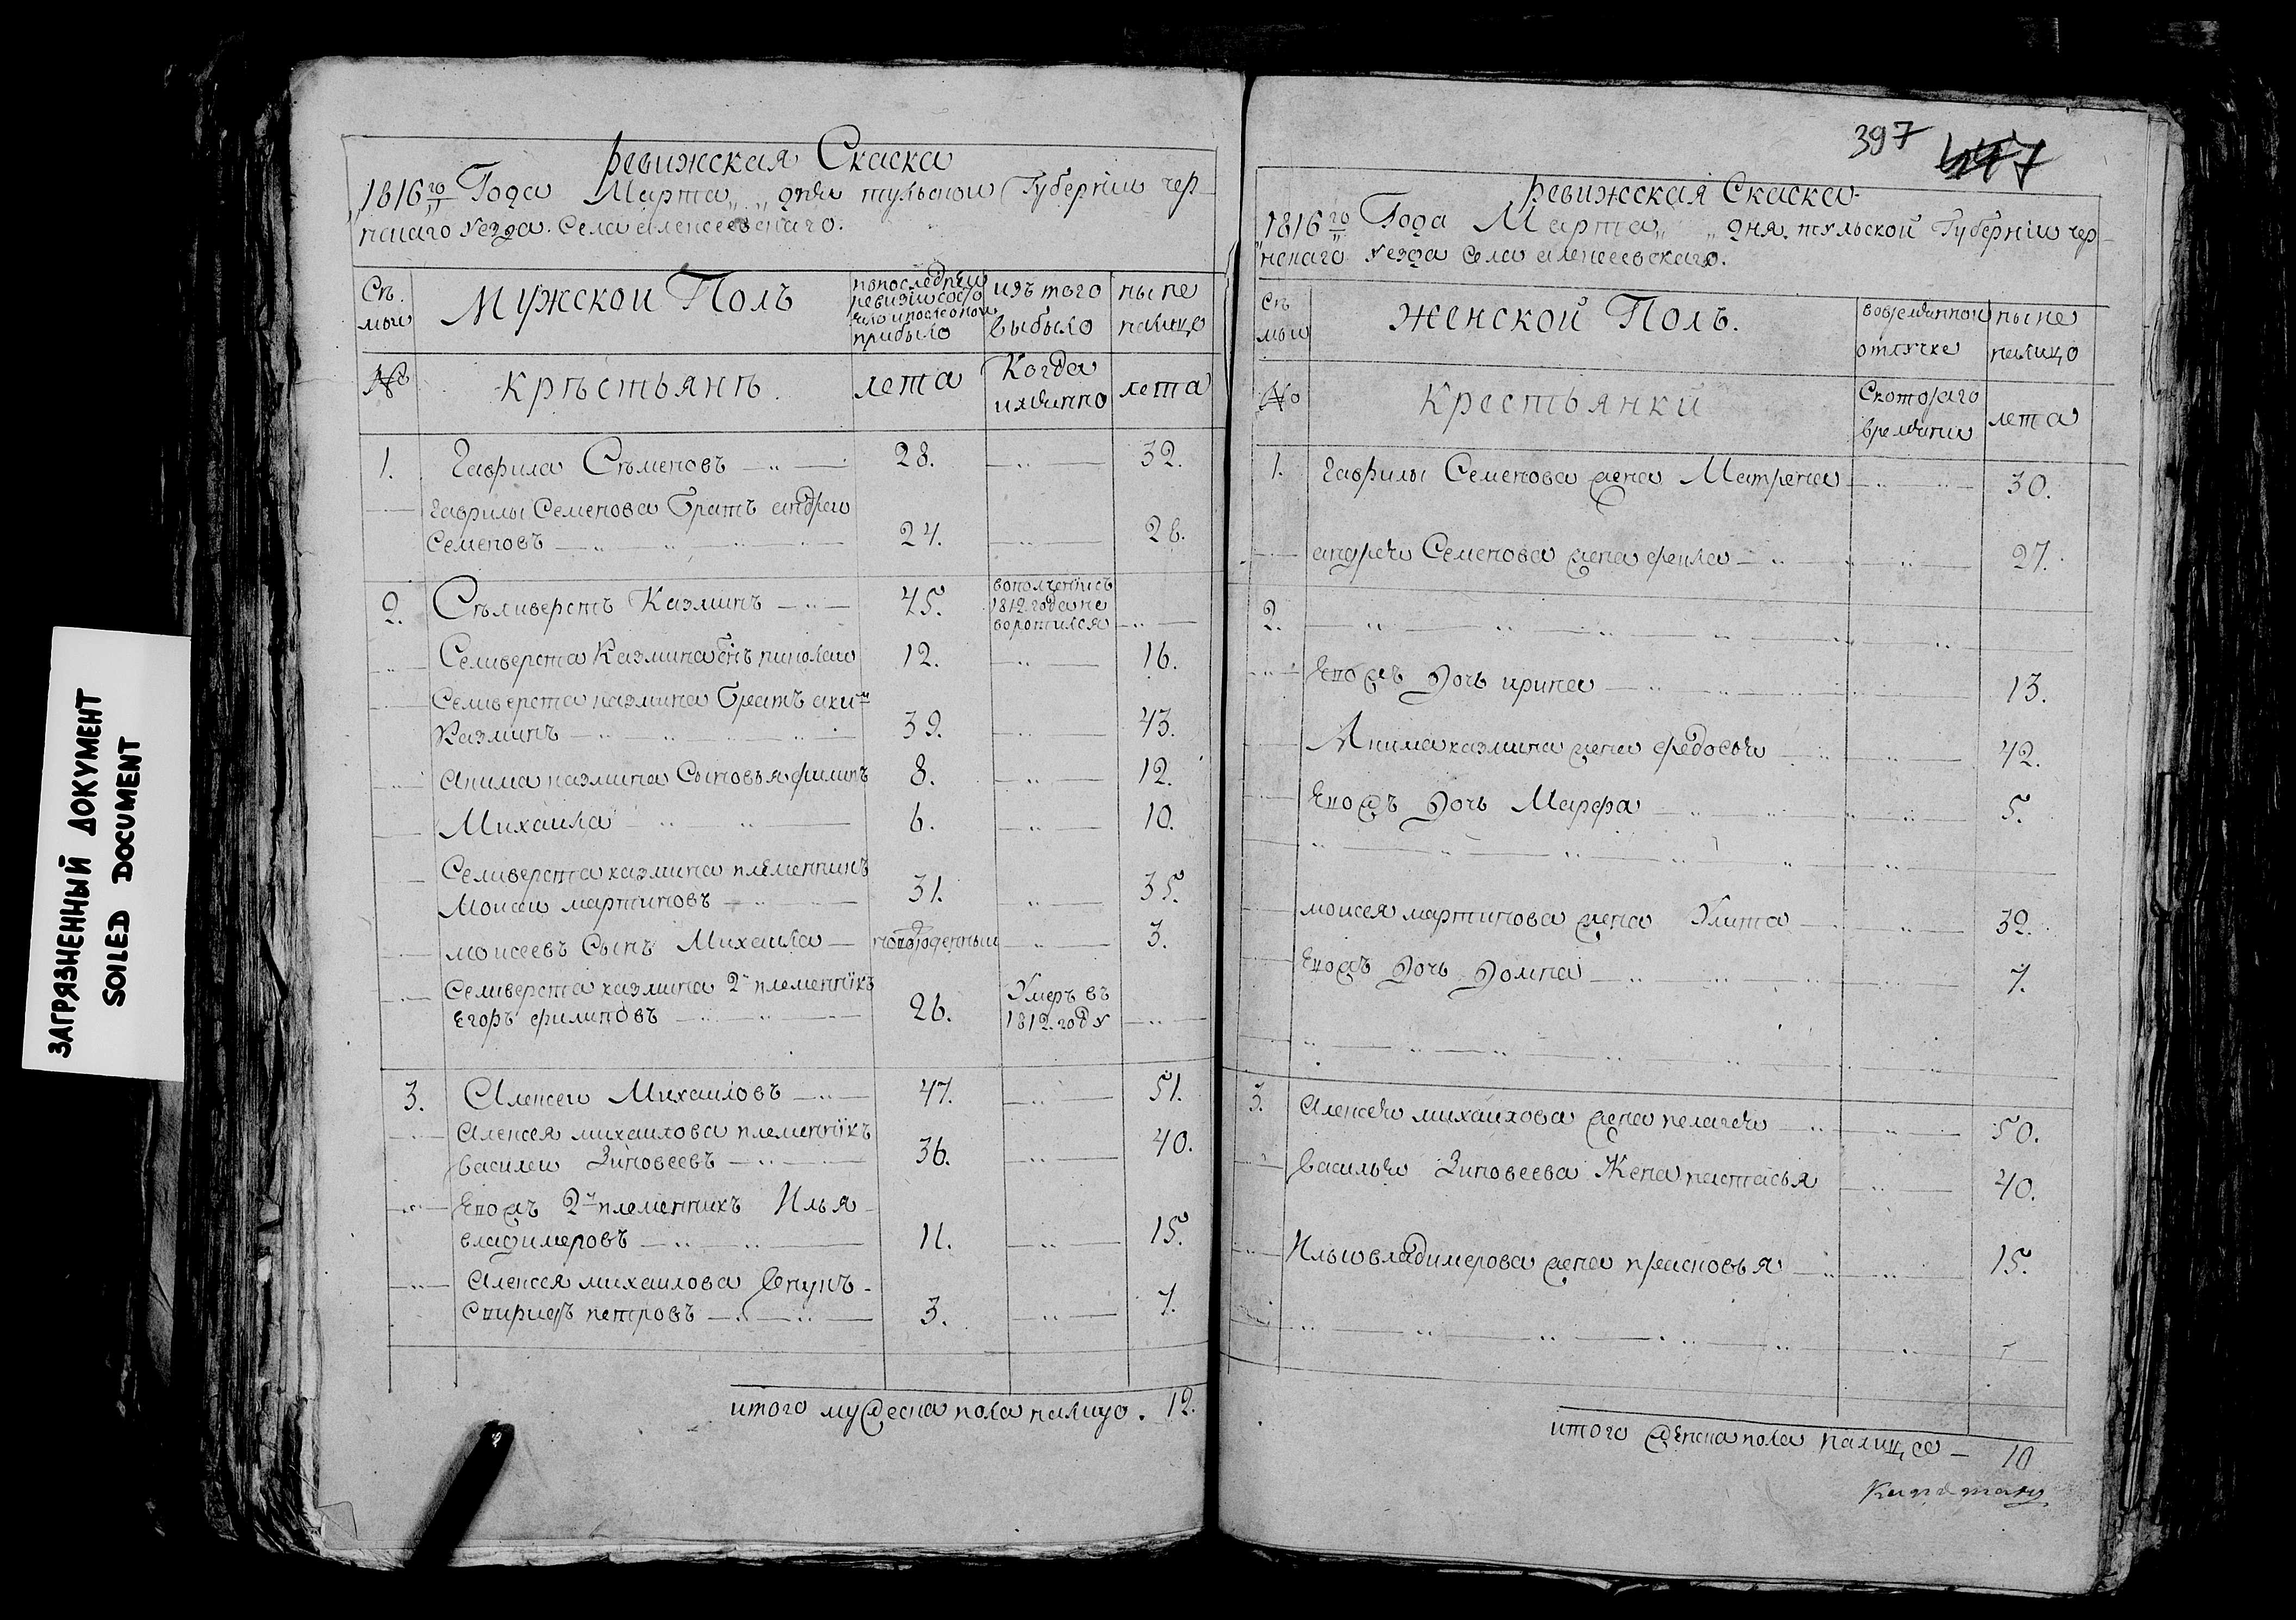 ЗАГРЯЗНЕННЫЙ ДОКУМЕНТ
SOILED DOCUMENT
Ревижская Скаска
1816го Года Марта „ „ дня тульскои Губернiи чер
нскаго уезда. Села алексеевскаго.
Съ
мьи
Мужскои Полъ
попоследнеи
ревизiи состо
яло ипослеонои
прибыло
изъ того
выбыло
ныне
налицо
№
кръстьянъ.
лета
Когда
имянно
лета
1. Гаврила Съменовъ 28. 32.
Гаврилы Семенова Братъ андреи
Семеновъ 24. 28.
2. Съливерстъ Казминъ 45.
вополченiе съ
1812. года не
воротился
Селиверста Казмина снъ николаи 12. 16.
Селиверста казмина Братъ аки
Казминъ 39. 43.
акима казмина Сыновья филипъ 8. 12.
Михаила 6. 10.
Селиверста казмина племянникъ
Моисеи мартиновъ 31. 35.
моисеевъ Сынъ Михаила 3.
Селиверста казмина 2й племеннiкъ
Егоръ филиповъ 26.
Умеръ въ
1812. году
3. Алексеи Михаиловъ 47. 51.
Алексея михаилова племеннiкъ
василеи Зиновеевъ 36. 40.
Егожъ 2й племенникъ Илья
владимеровъ 11. 15.
Алексея михаилова Внукъ
Спиридъ петровъ 3. 7.
итого мужеска пола налицо. 12.
397 447
Ревижская Скаска
1816го Года Марта „ „ дня. тульской Губернiи чер
нскаго уезда Села алексеевскаго.
Съ
мьи
Женской Полъ.
вовременной
отлучке
ныне
налицо
№
Крестьянки
Скотораго
времени
лета
1. Гаврилы Семенова жена Матрена 30.
андрея Семенова жена фекла 27.
2.
Егожъ Дочь ирина 13.
Акима казмина жена федосья 42.
Егожъ Дочь Марфа 5.
моисея мартинова жена Улита 32.
Егожъ Дочь Домна 7.
3. Алексея михаилова жена пелагея 50.
Василья Зиновеева Жена настасья 40.
Ильи владимерова жена прасковья 15.
итого женска пола налицо 10